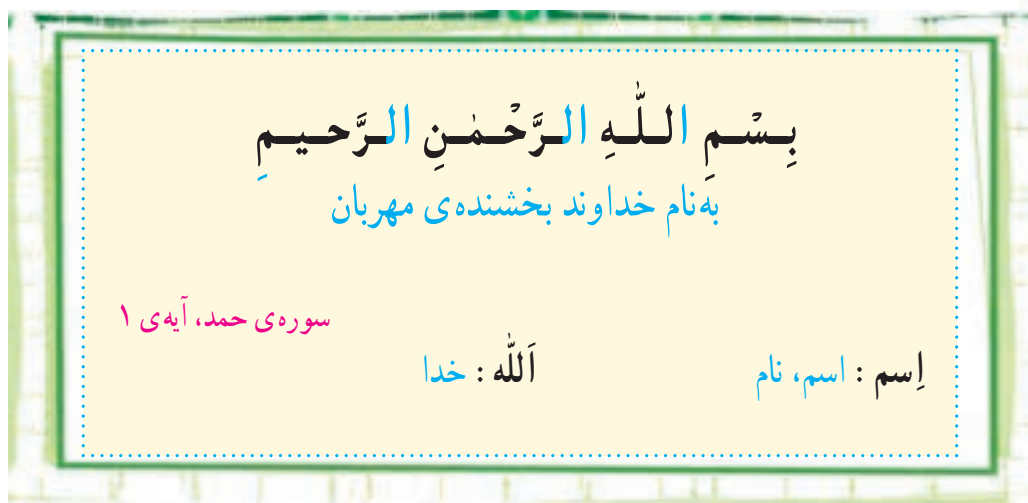 بِـسْـمِ الـلّٰـهِ الـرَّحْـمٰـنِ الـرَّحـیـمِ
به‌نام خداوند بخشنده‌ی مهربان
سوره‌ی حمد، آیه‌ی ۱
اِسم : اسم، نام اَللّٰه : خدا